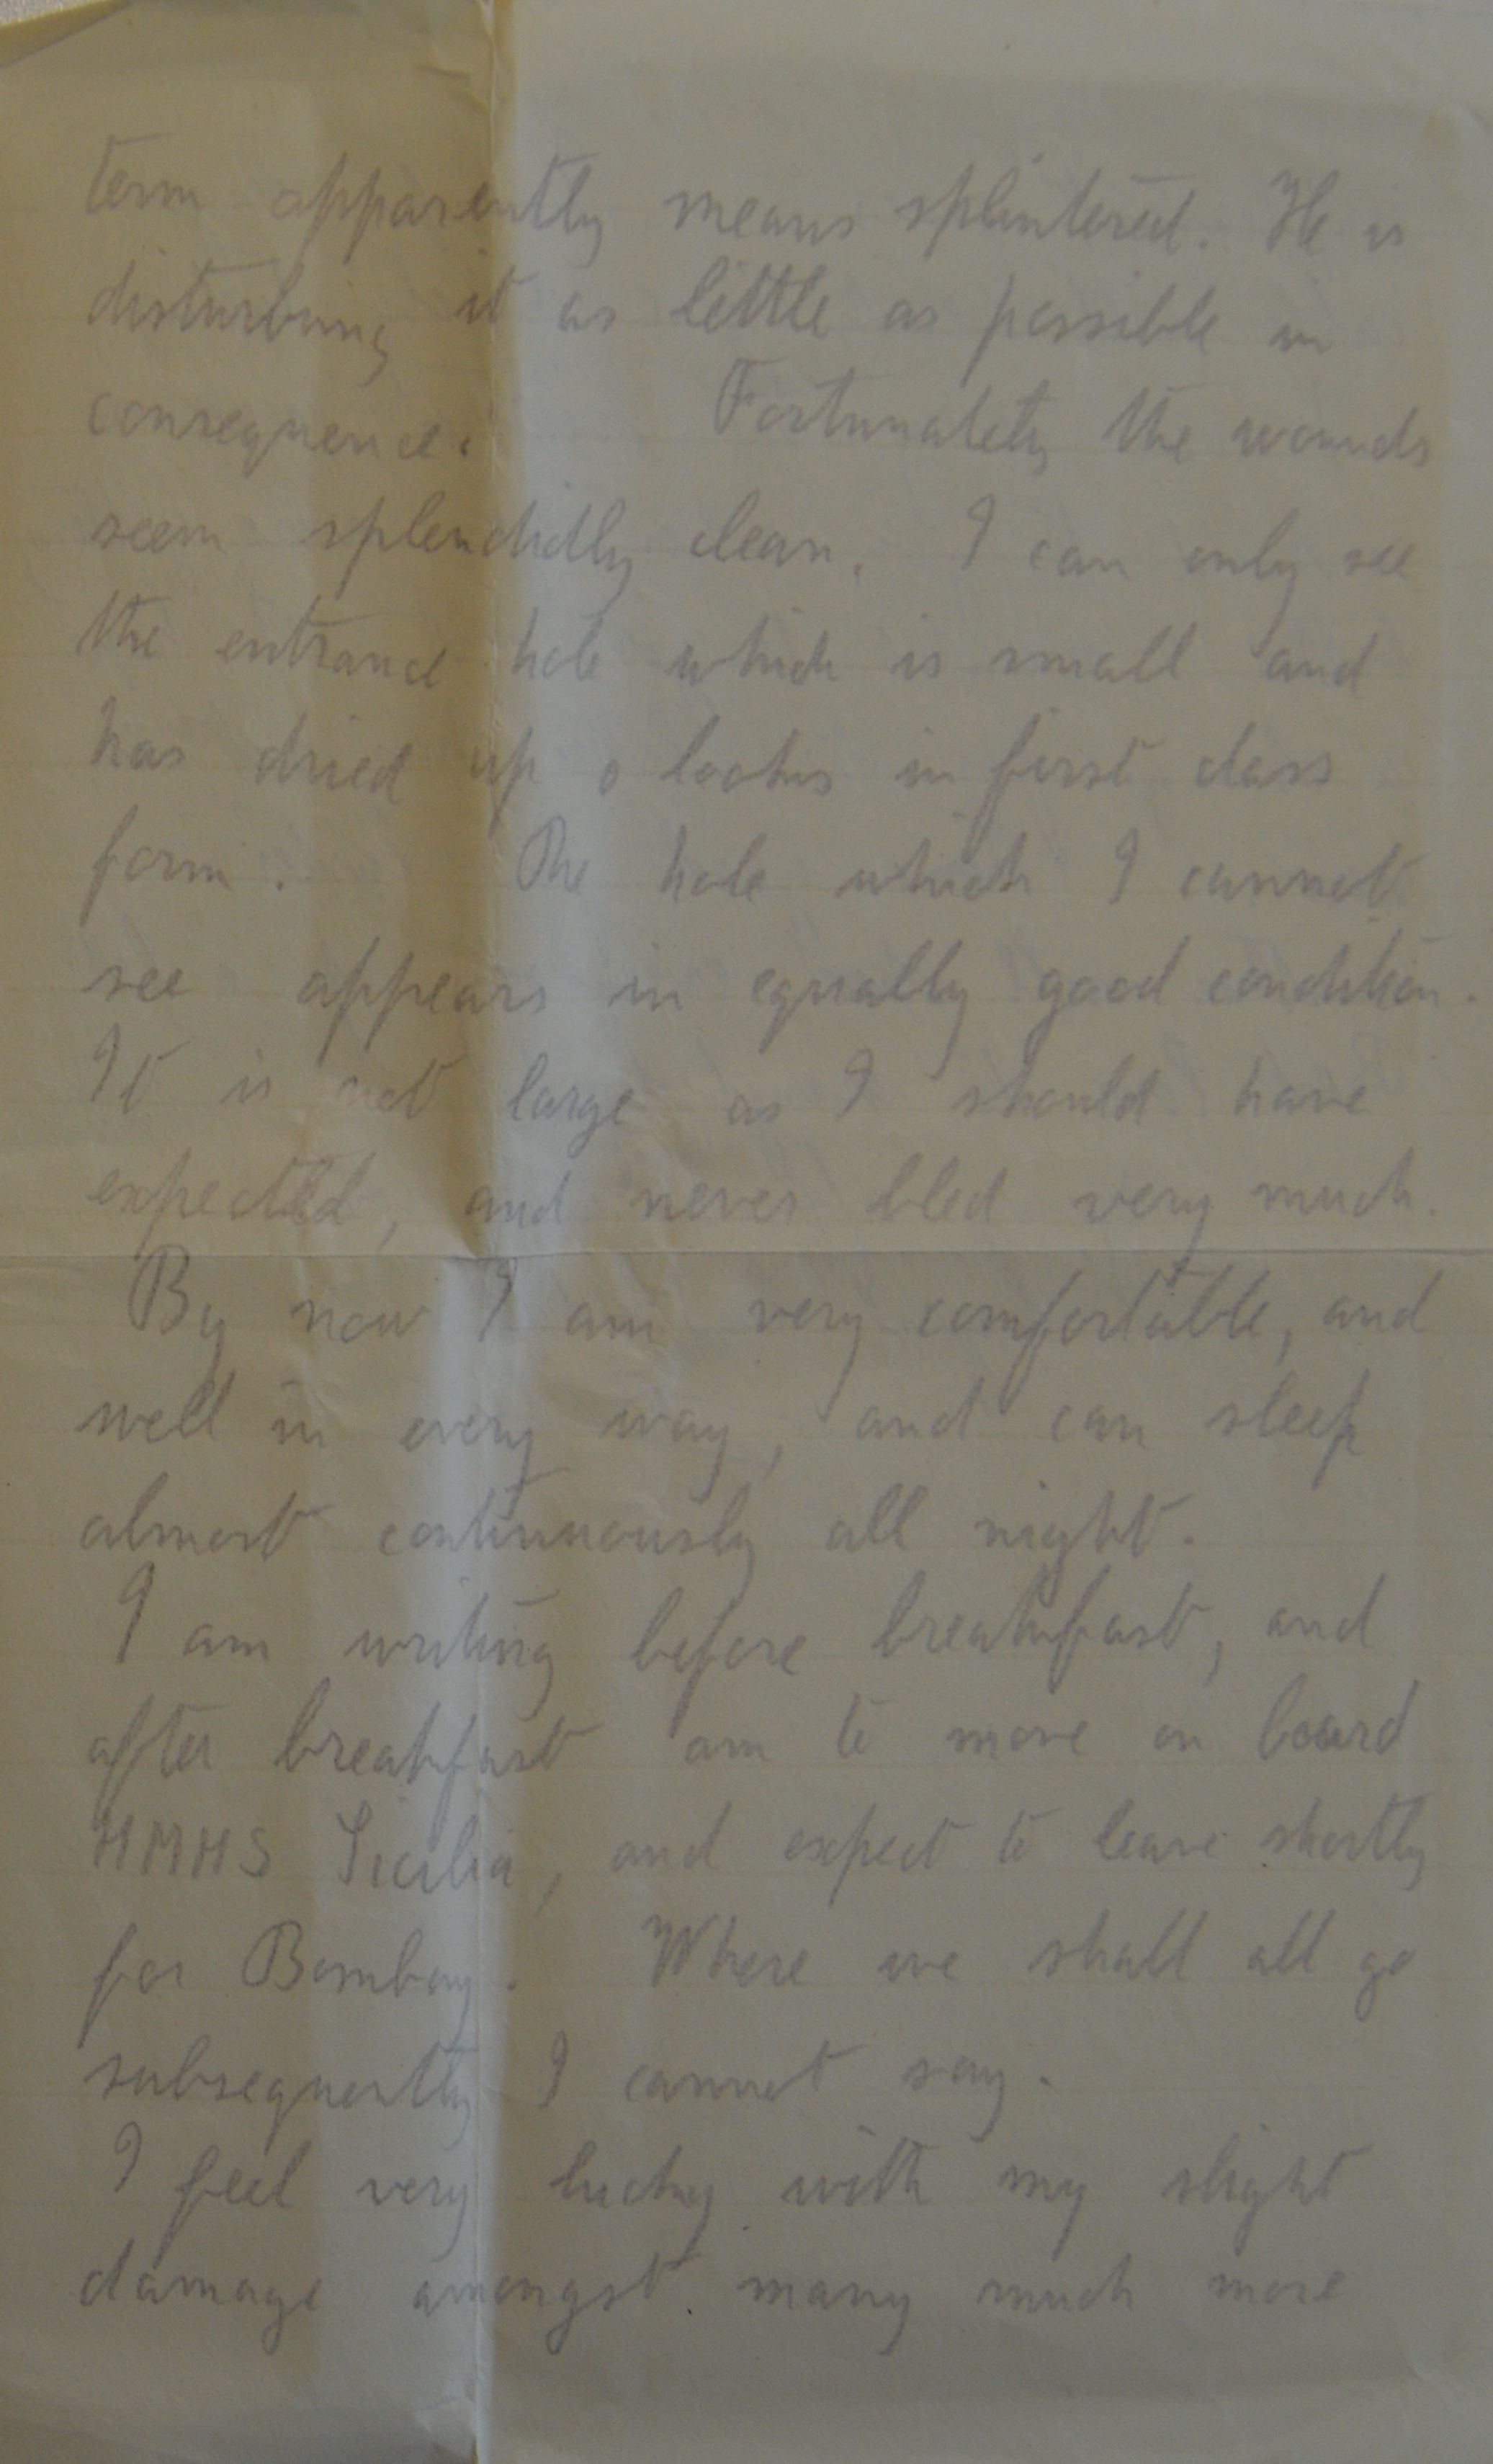 term apparently means splintered. He is
disturbing it as little as possible in
consequence. Fortunately the wounds
seem splendidly clean. I can only see
the entrance hole which is small and
has dried up & looks in first class
form. The hole which I cannot
see appears in equally good condition.
It is not large as I should have
expected, and never bled very much.
By now I am very comfortable, and
well in every way, and can sleep
almost continuously all night.
I am writing before breakfast, and
after breakfast am to move on board
HMHS Sicilia, and expect to leave shortly
for Bombay. Where we shall all go
subsequently I cannot say.
I feel very lucky with my slight
damage amongst many much more